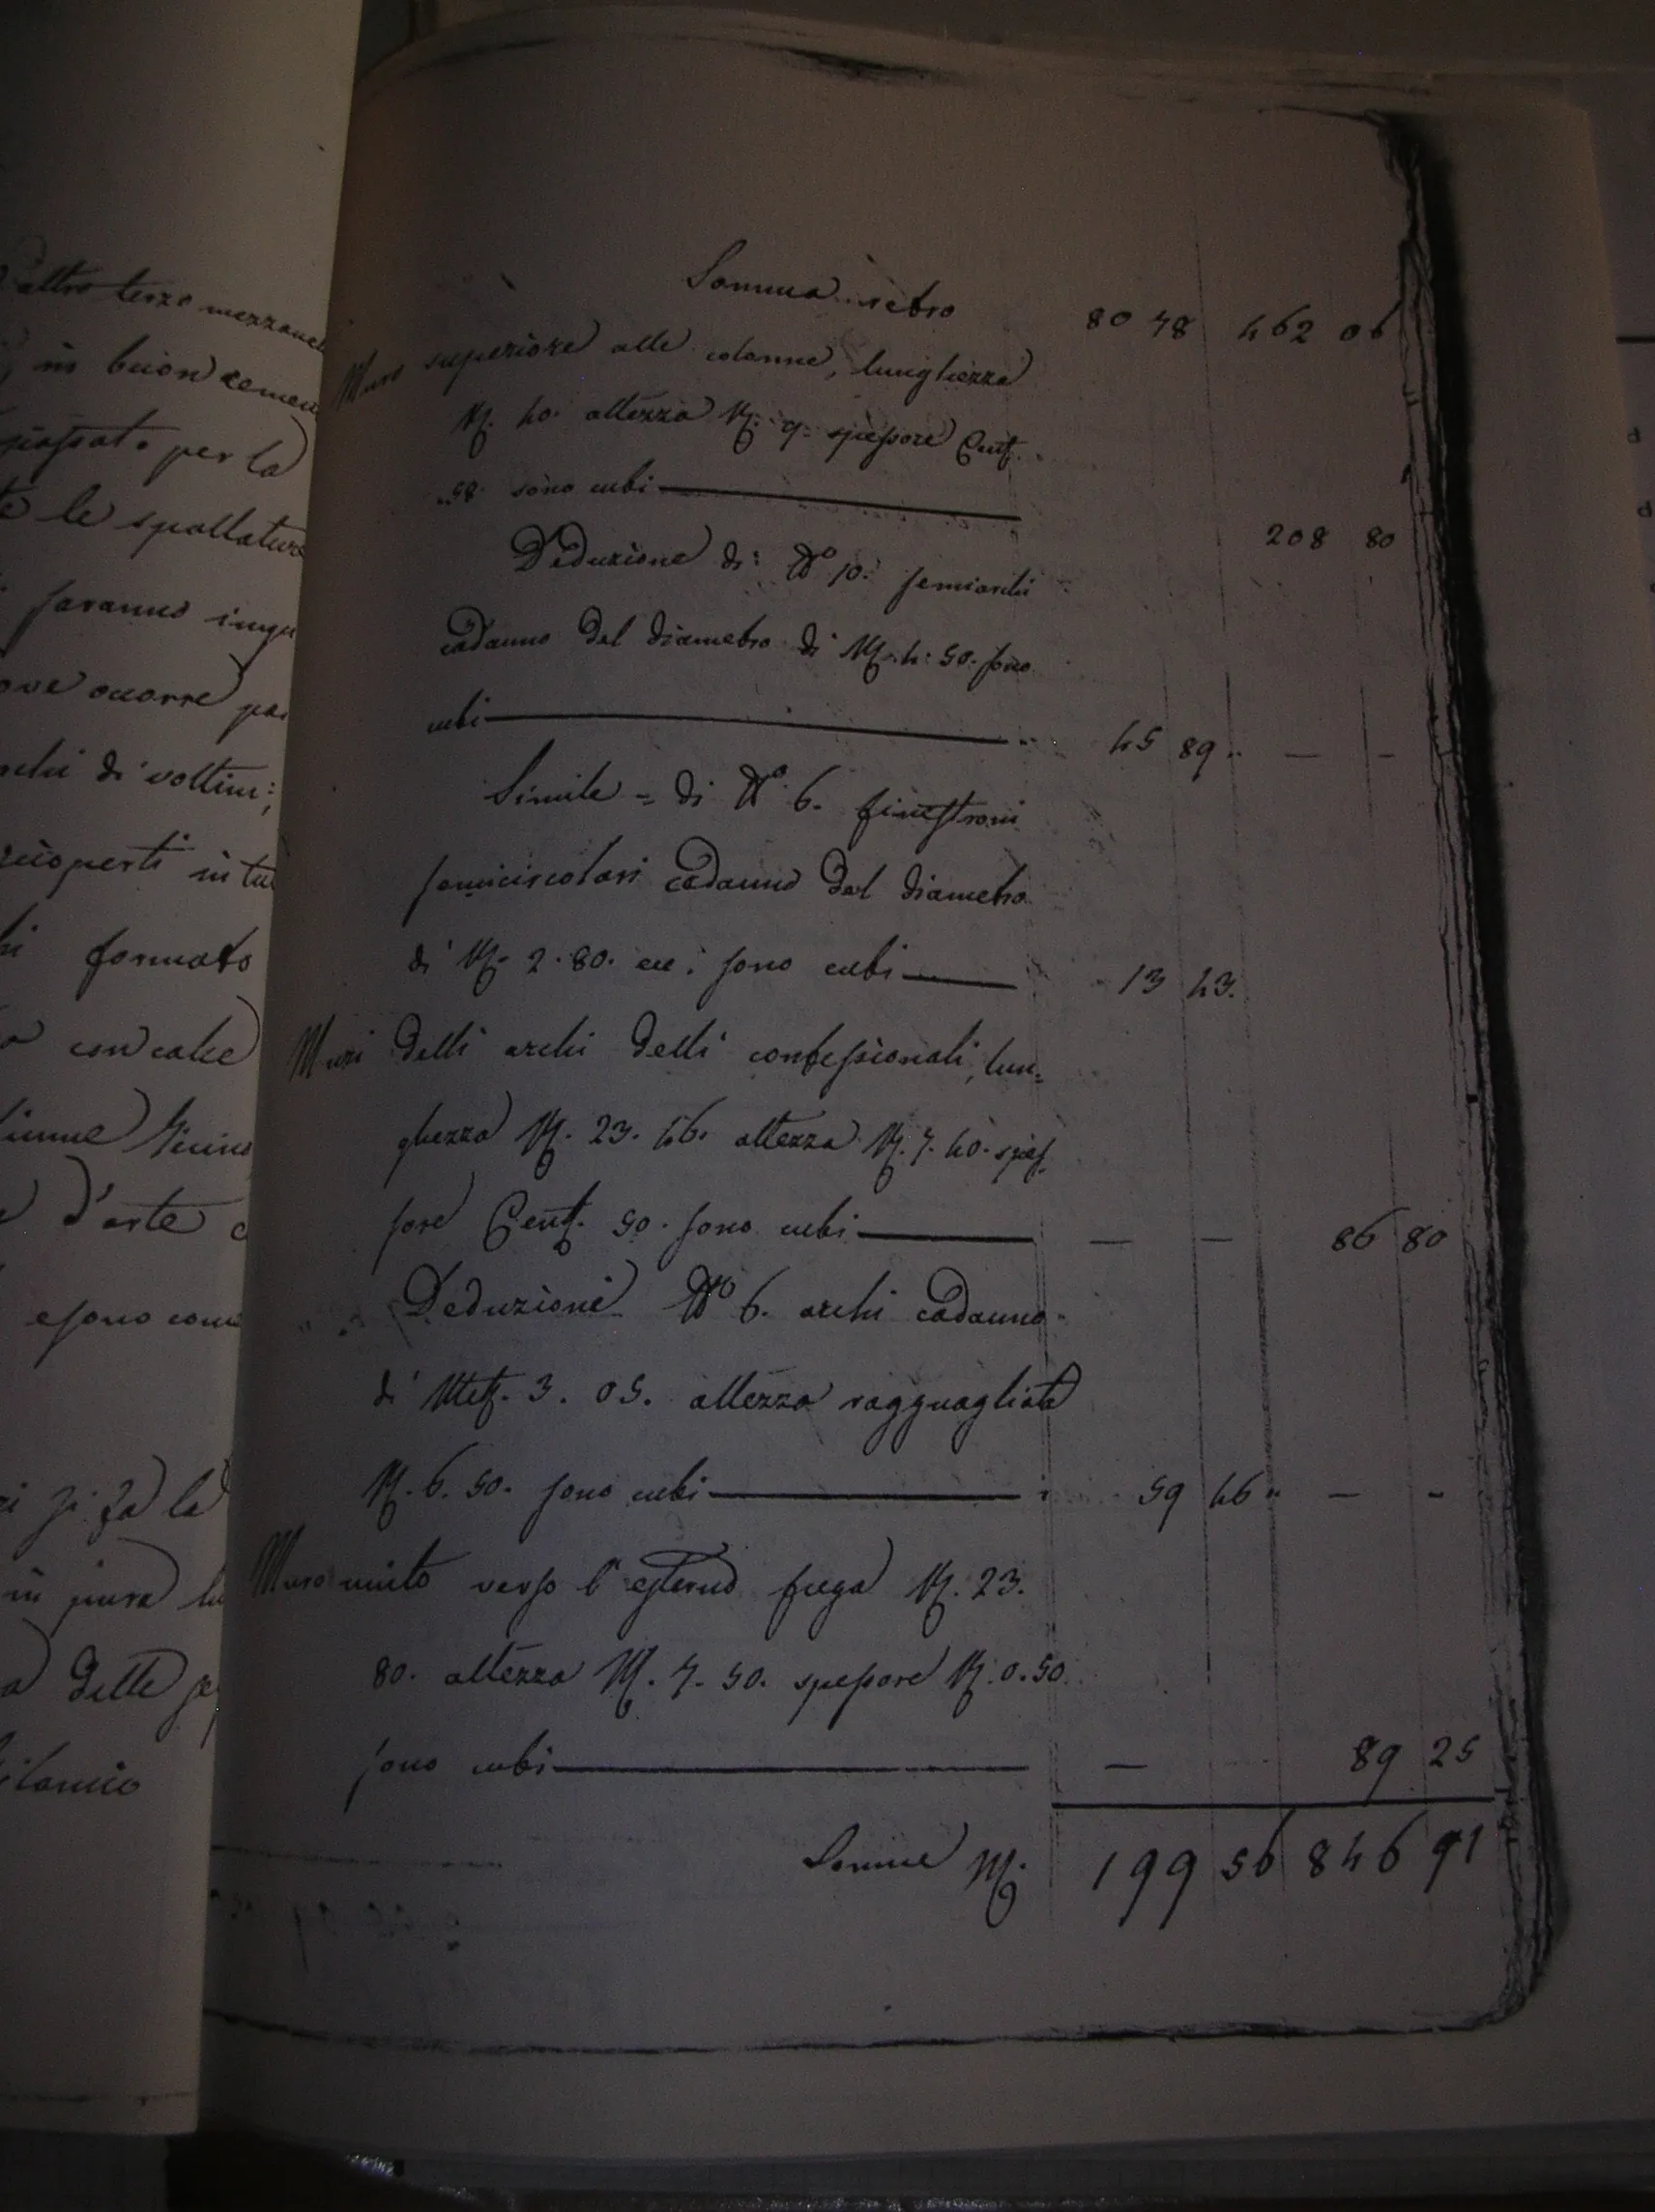 altro terzo mezzane
in buon cemen
per la
le spallature
saranno
ove occorre
archi di voltini;
scoperti in tu
formato
con calce
d'arte
e sono come
si fa la
in pura
delle
Somma retro 80 78 462 06
Muro superiore alle colonne, lunghezza
M. 40. altezza M. 9. spessore Cent.
58. sono cubi — 208 80
Deduzione di N.º 10. semiarchi
cadauno del diametro di M. 4. 50. sono
cubi — 45 89 „ — —
Simile = di N.º 6. finestroni
semicircolari cadauno del diametro
di M. 2. 80. ec. sono cubi — 13 43.
Muri delli archi delli confessionali, lun=
ghezza M. 23. 46. altezza M. 7. 40. spes=
sore Cent. 50. sono cubi — — — 86 80
Deduzione N.º 6. archi cadauno
di Met. 3. 05. altezza ragguagliata
M. 6. 50. sono cubi — 59 46 „ — -
Muro unito verso l'esterno fuga M. 23.
80. altezza M. 7. 50. spessore M. 0. 50.
sono cubi — — 89 25
Somme M. 199 56 846 91